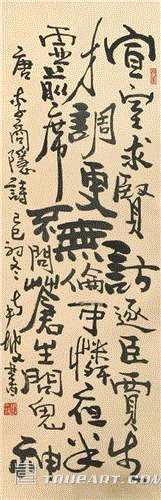 宣室求賢訪逐臣賈生
才調更無倫可憐夜半
虛前席不問蒼生問鬼神
唐李商隱詩己巳初冬